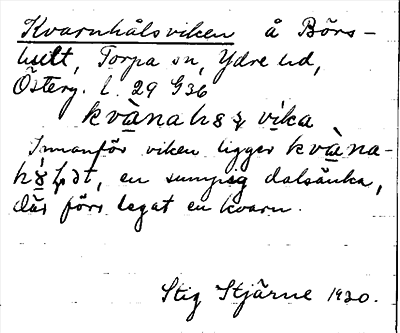 Kvarnhålsviken å Börs-
hult, Torpa sn, Ydre hd,
Österg. l. 29 G36
kvànah8 vi̱ka
Innanför viken ligger kvàna-
h8 ət, en sumpig dalsänka,
där förr legat en kvarn.
Stig Stjärne 1920.